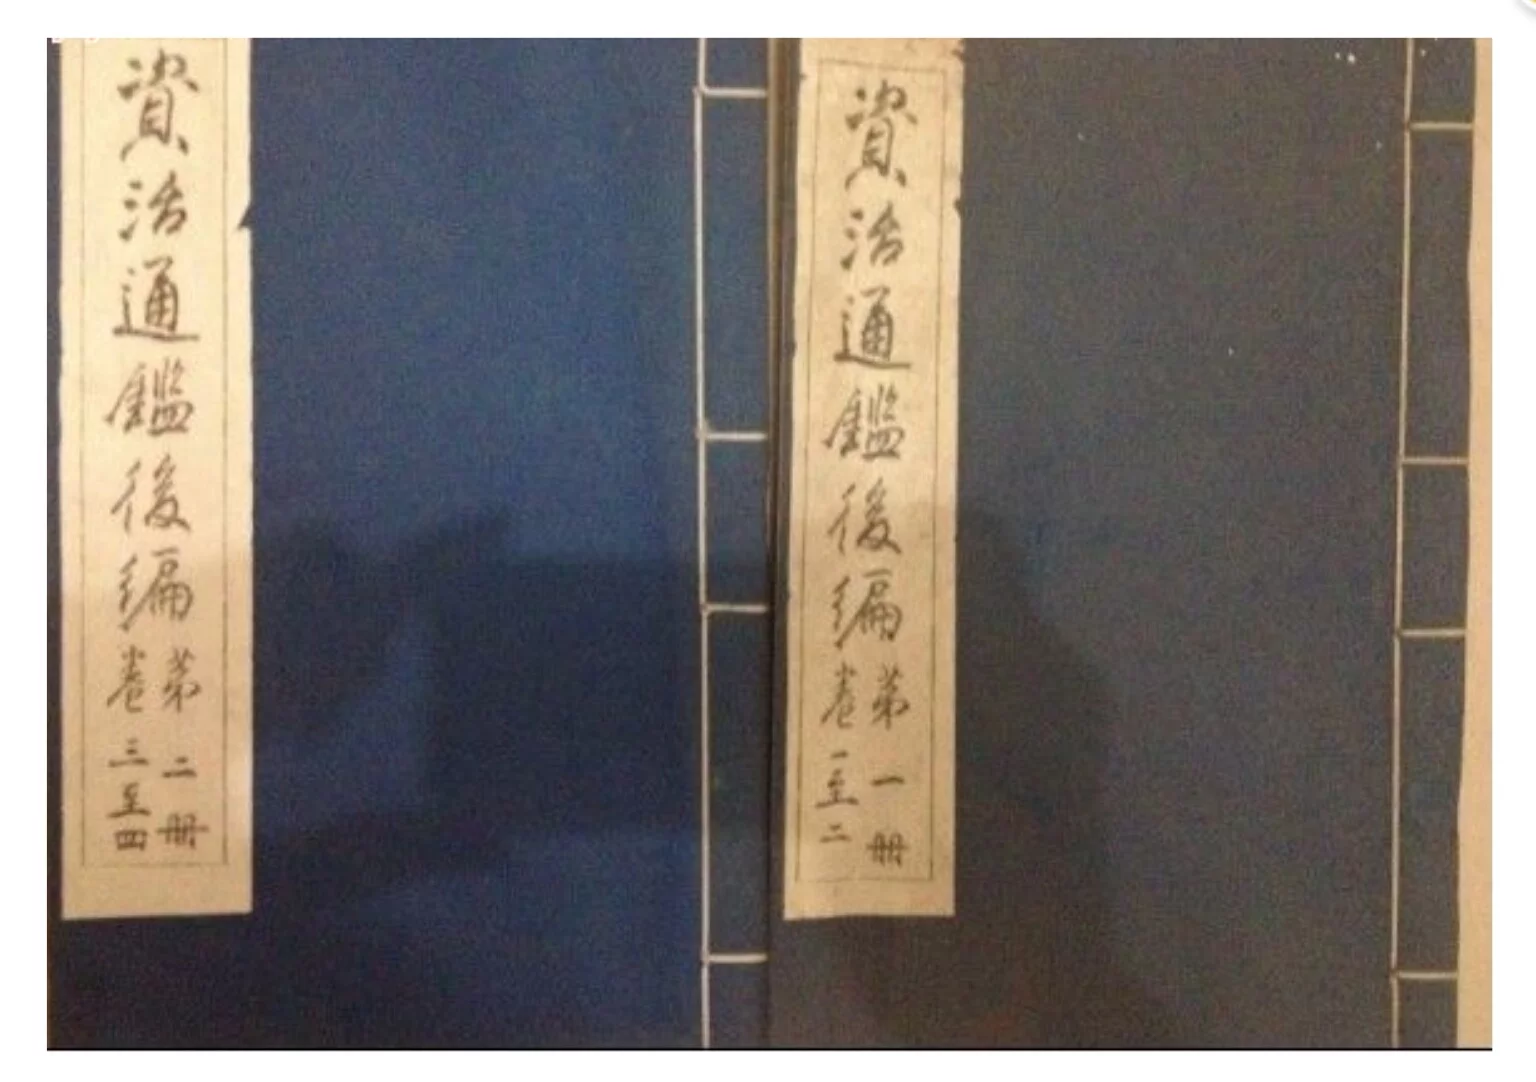 資治通鑑後編
第一册
卷一至二
資治通鑑後編
第二册
卷三至四